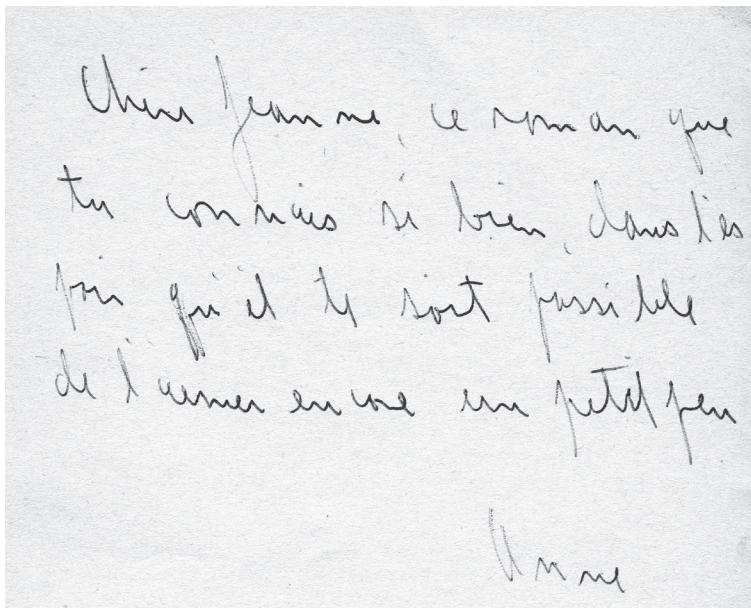 Chère Jeanne, ce roman que
tu connais si bien, dans l'es
poir qu'il te soit possible
de l'aimer encore un petit peu
Anne